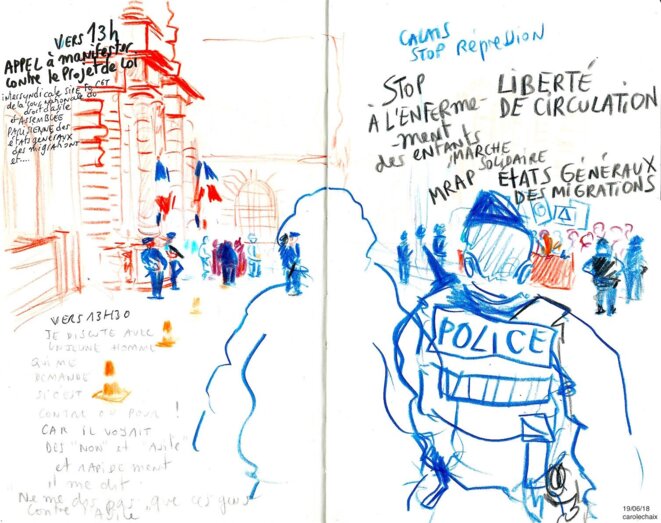 VERS 13h
APPEL à manifester
contre le Projet de Loi
intersyndicale
de la Cour Nationale du
droit d'asile
d'ASSEMBLÉE
PARISIENNE des
États généraux
des migrations
et....
VERS 13H30
JE DISCUTE AVEC
UN JEUNE HOMME
QUI ME
DEMANDE
SI C'EST
CONTRE OU POUR !
CAR IL VOYAIT
DES "NON" et "ASILE"
et RAPIDEMENT
il me dit
Ne me dis pas que ces gens
contre l'"ASILE"
CALAIS
STOP RépRESSION
STOP
À L'ENFERME-
-ment
des enfants
LIBERTÉ
DE CIRCULATION
MARCHE
SOLIDAIRE
MRAP
ETATS GÉNÉRAUX
DES MIGRATIONS
POLICE
19/06/18
carolechaix